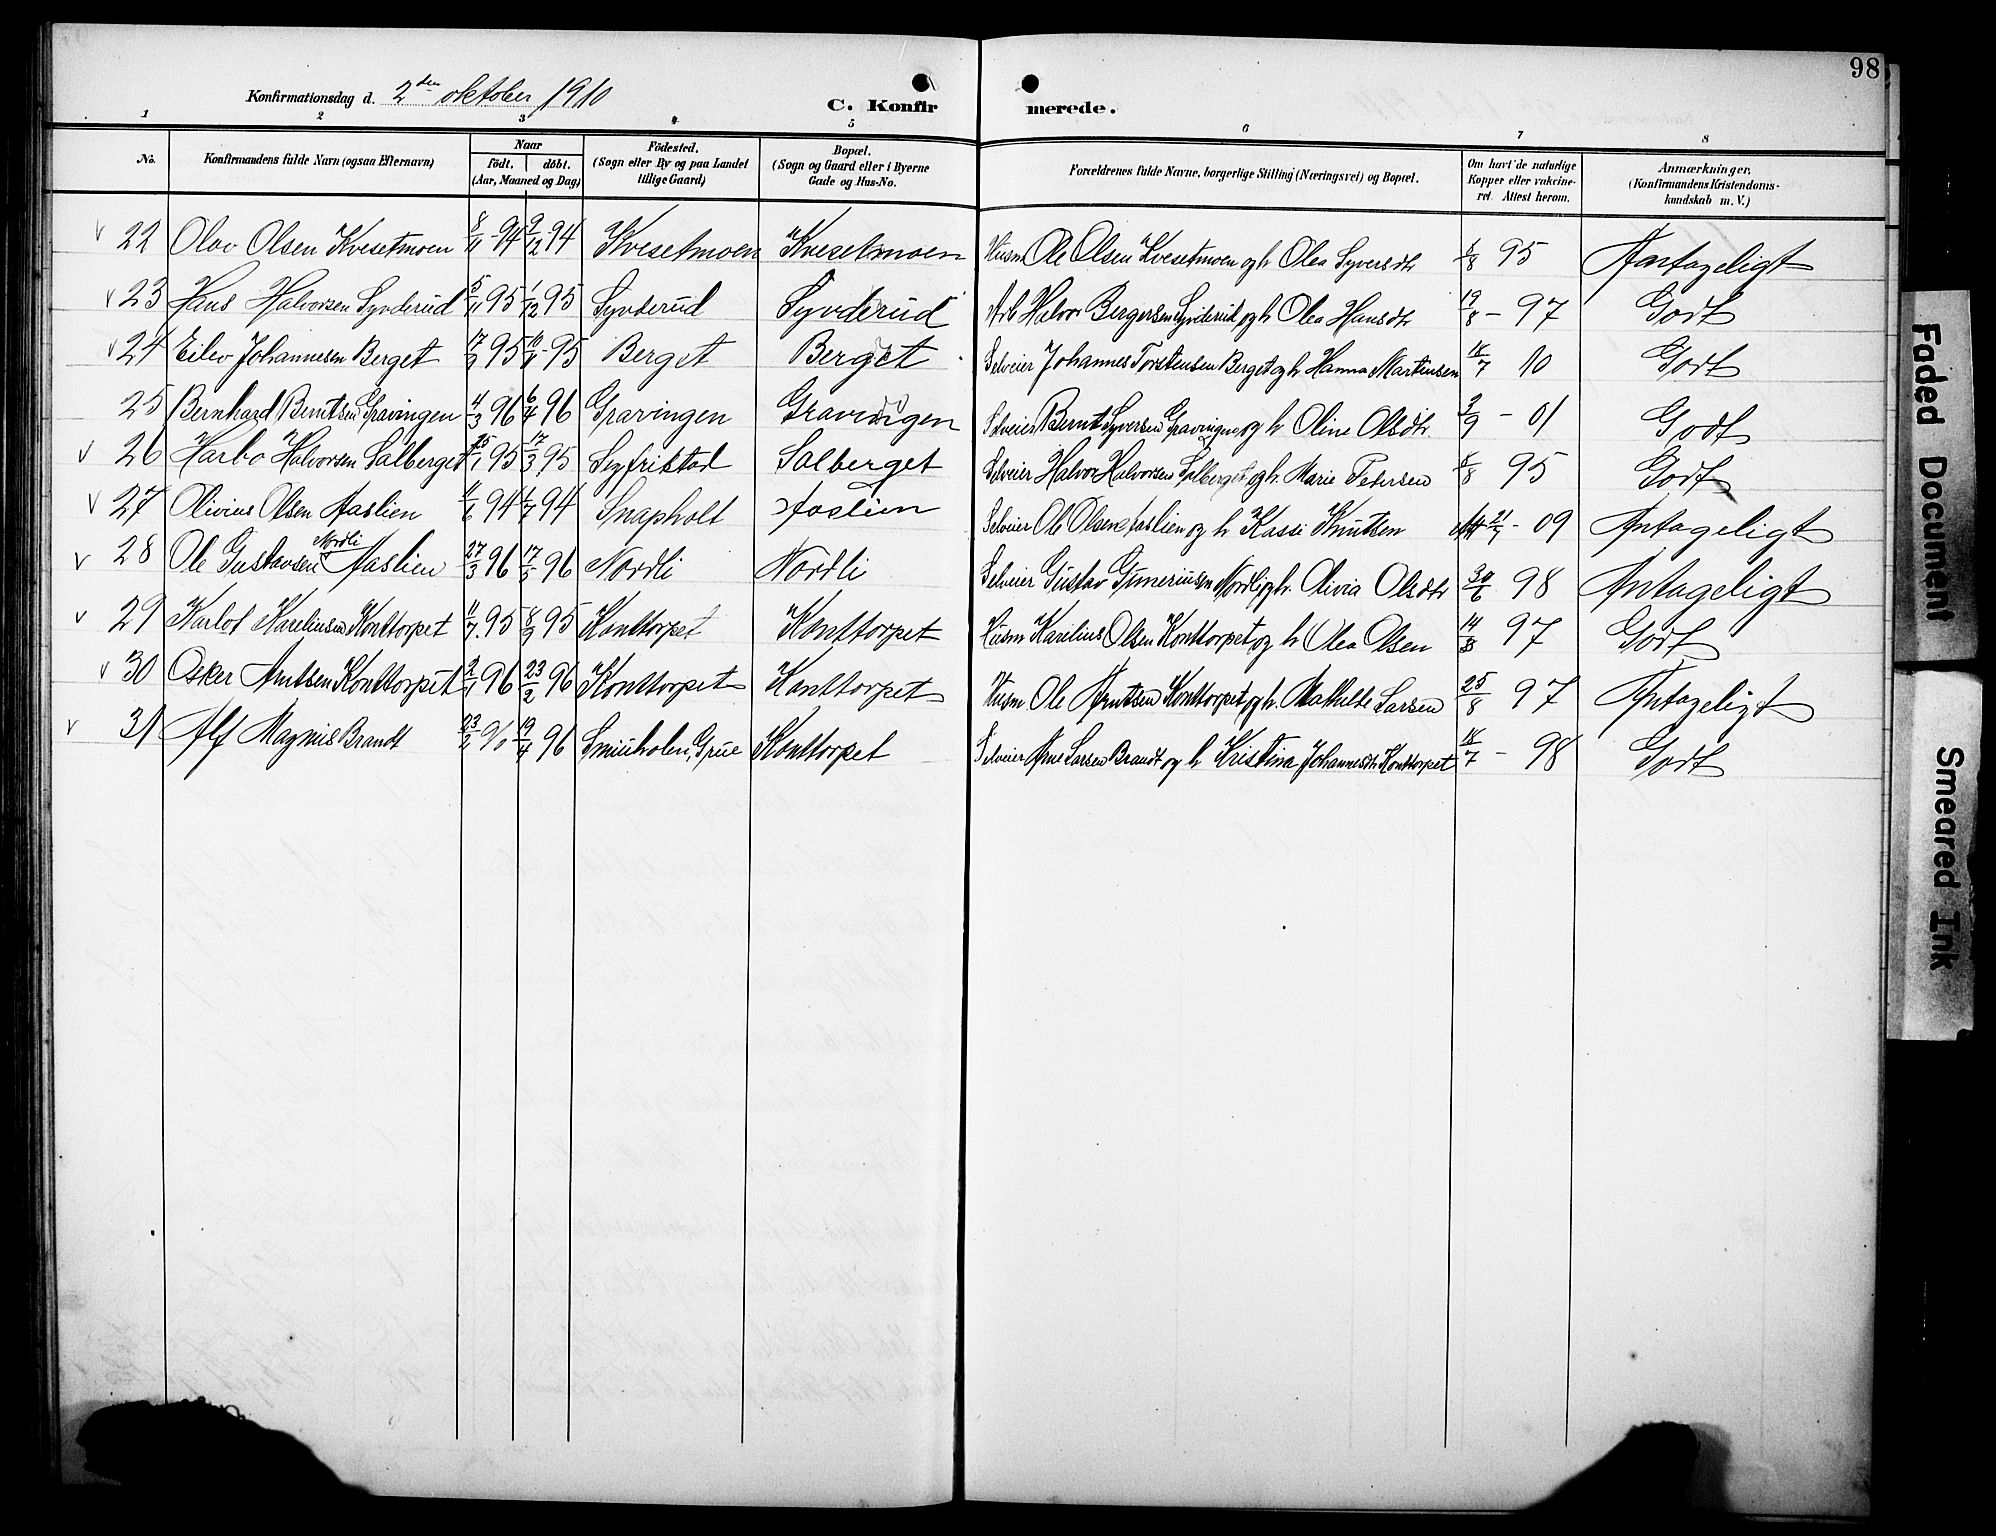 98
Konfirmationsdag d. 2den oktober 1910
C. Konfirmerede.
1 2 3 4 5 6 7 8
No. Konfirmandens fulde Navn (ogsaa Efternavn) Naar födt. döbt. (Aar, Maaned og Dag) Födested. (Sogn eller By og paa Landet tillige Gaard) Bopæl. (Sogn og Gaard eller i Byerne Gade og Hus-No. Forældrenes fulde Navne, borgerlige Stilling (Næringsvei) og Bopæl. Om havt de naturlige Kopper eller vakcineret. Attest herom. Anmærkninger. (Konfirmandens Kristendomskundskab m. V.)
22 Olav Olsen Kvesetmoen 8/11-94 9/12-94 Kvesetmoen Kvesetmoen Husm Ole Olsen Kvesetmoen og h. Olea Syversdtr 95 Antageligt
23 Hans Halvorsen Synderud 5/11 95 1/12 95 Synderud Synderud Arb Halvor Bergersen Synderud og h Olea Hansdtr 19/8 - 97 Godt
24 Eilev Johannesen Berget 95 95 Berget Berget Selveier Johannes Torstensen Berget og h Hanna Martinsen 18/7 10 Godt
25 Bernhard Berntsen Gravingen 4/3 96 6/4 96 Gravingen Gravingen Selveier Bernt Syversen Gravingen og h Oline Olsdtr. 3/9 - 01 Godt
26 Harbo Halvorsen Salberget 25/1 95 17/3 95 Syfristad Salberget Selveier Halvor Halvorsen Salberget og h. Marie Petersen 95 Godt
27 Olivius Olsen Aaslien 94 94 Snapholt Aaslien Selveier Ole Olsen Aaslien og h Kasse Knutsen 09 Antageligt
28 Ole Gustavsen Nordli Aaslien 27/3 96 17/5 96 Nordli Nordli Selveier Gustav Gunneriusen Nordli og h. Olivia Olsdtr 30/6 98 Antageligt
29 Karlot Kareliusen Konttorpet 11/7.95 8/9 95 Konttorpet Konttorpet Husm Karelius Olsen Konttorpet og h Olea Olsen 14/8 97 Godt
30 Osker Arntsen Konttorpet 2/1 96 23/2 96 Konttorpet Konttorpet Husm. Ole Arntsen Konttorpet og h. Mathilde Larsen 25/8 97 Antageligt
31 Alf Magnus Brandt 23/2 96 19/4 96 Smiuholen, Grue Konttorpet Selveier Arne Larsen Brandt og h Kristina Johannesdtr Konttorpet 18/7 - 98 Godt
Faded Document
Smeared Ink